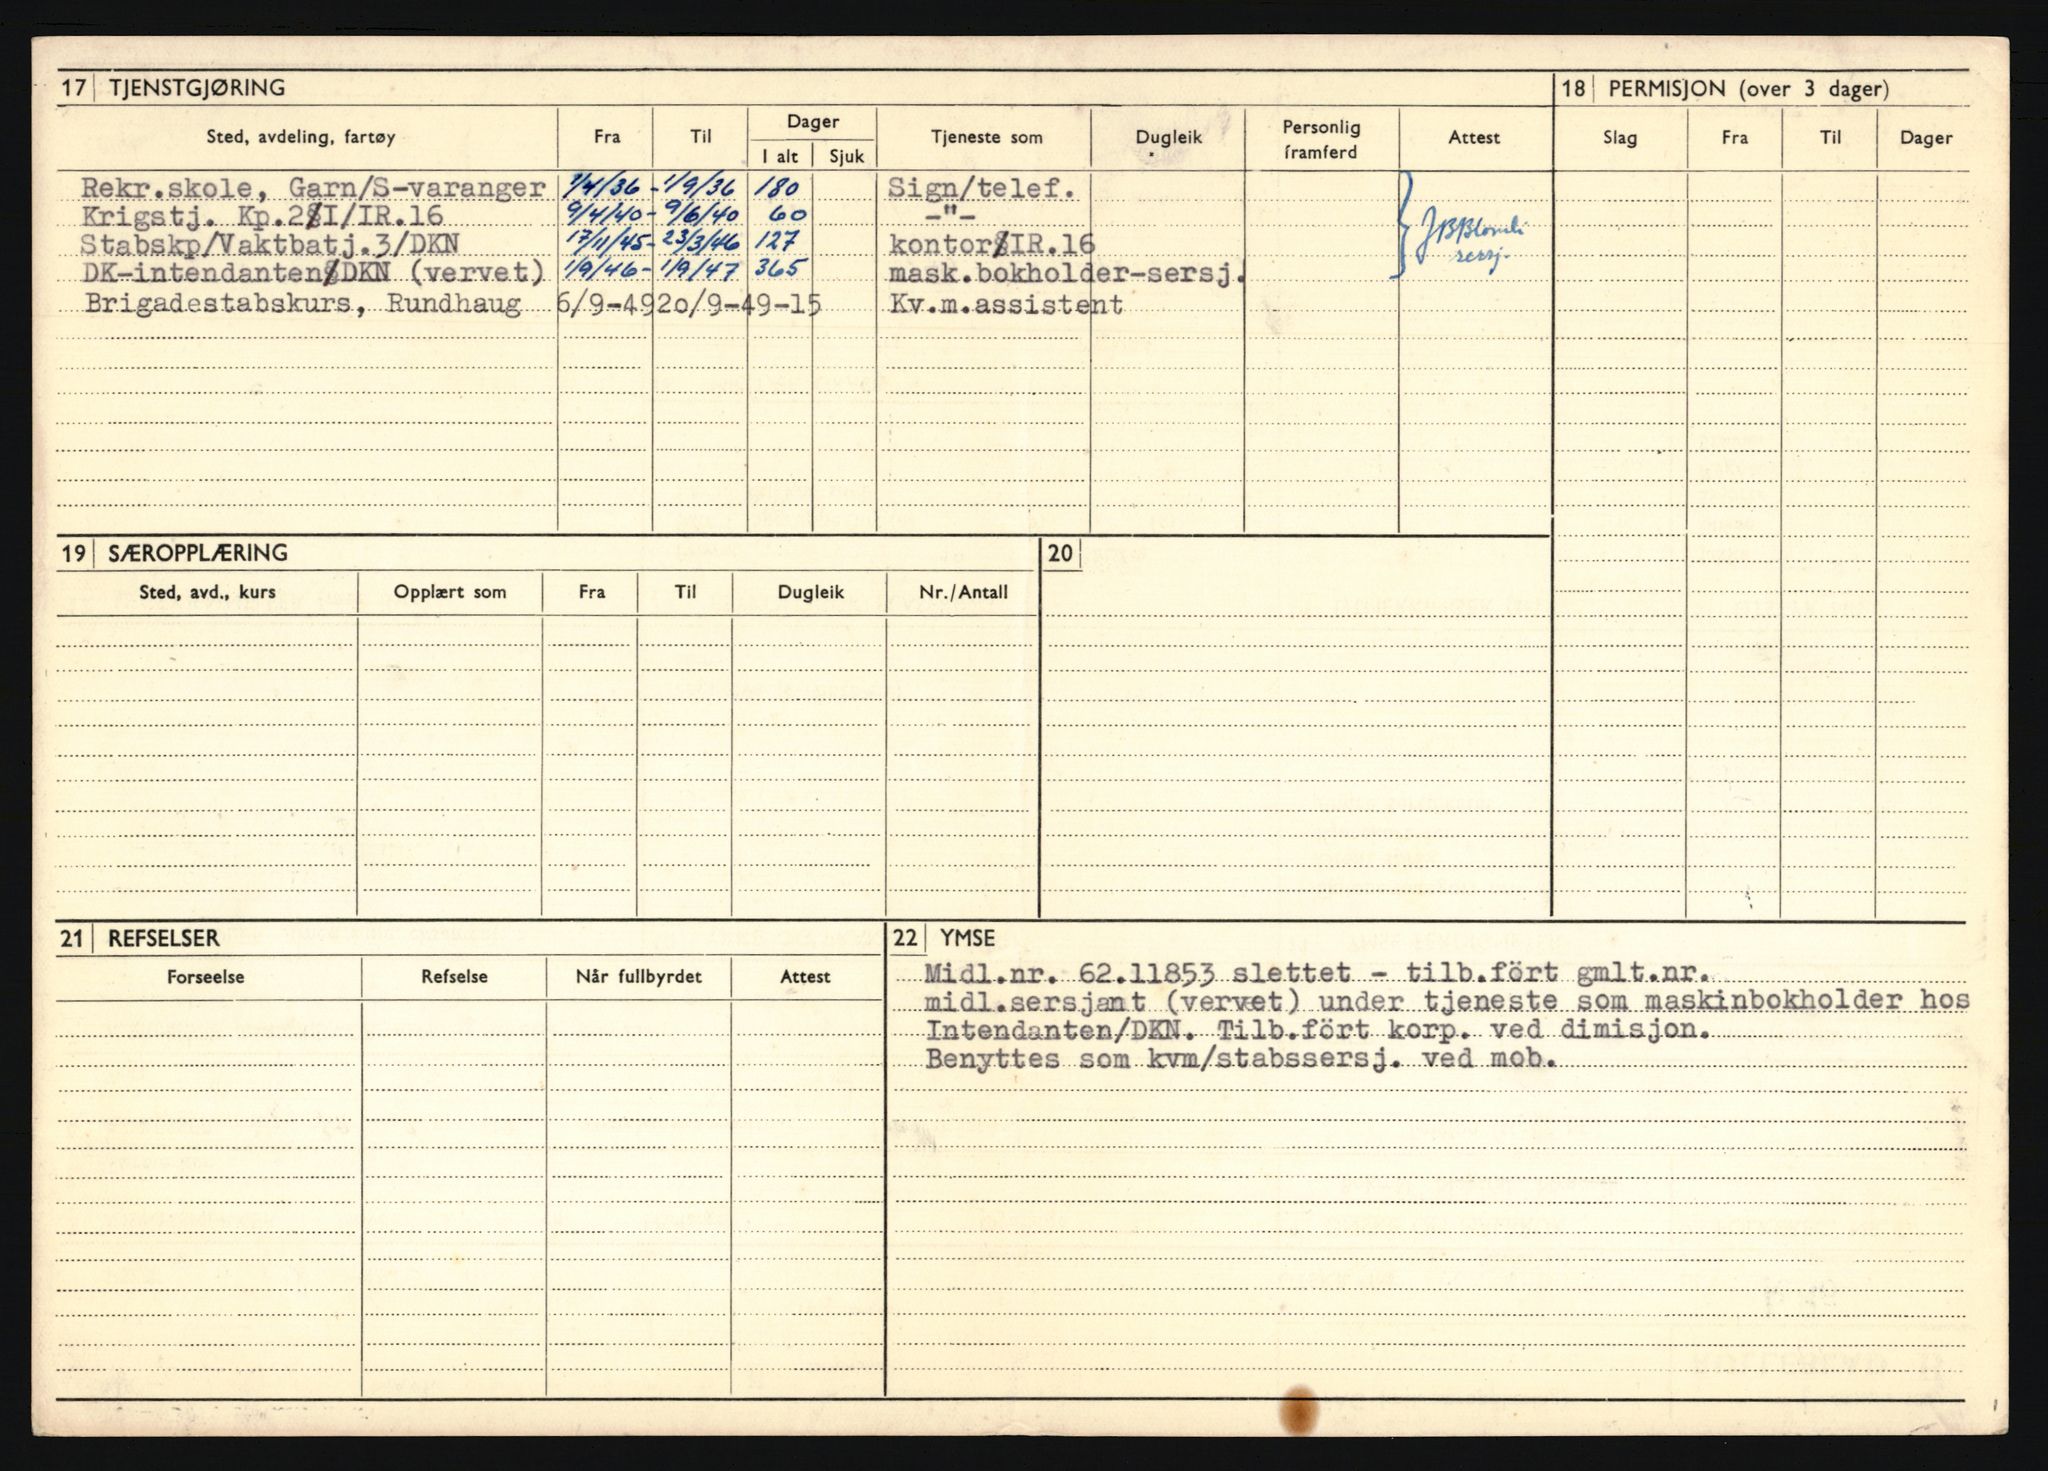 17 TJENSTGJØRING
18 PERMISJON (over 3 dager)
Sted, avdeling, fartøy Fra Til Dager Tjeneste som Dugleik Personlig framferd Attest Slag Fra Til Dager
I alt Sjuk
Rekr.skole, Garn/S-varanger 1/4/36 - 1/9/36 180 Sign/telef.
Krigstj. Kp.2/I/IR.16 9/4/40 - 9/6/40 60 -"-
Stabskp/Vaktbatj.3/DKN 17/11/45 - 23/3/46 127 kontor/IR.16
sersj.
DK-intendanten/DKN (vervet) 1/9/46 - 1/9/47 365 mask.bokholder-sersj.
Brigadestabskurs, Rundhaug 6/9-49 20/9-49-15 Kv.m.assistent
19 SÆROPPLÆRING
20
Sted, avd., kurs Opplært som Fra Til Dugleik Nr./Antall
21 REFSELSER
22 YMSE
Forseelse Refselse Når fullbyrdet Attest
Midl.nr. 62.11853 slettet - tilb.ført gmlt.nr.
midl.sersjant (vervet) under tjeneste som maskinbokholder hos
Intendanten/DKN. Tilb.ført korp. ved dimisjon.
Benyttes som kvm/stabssersj. ved mob.